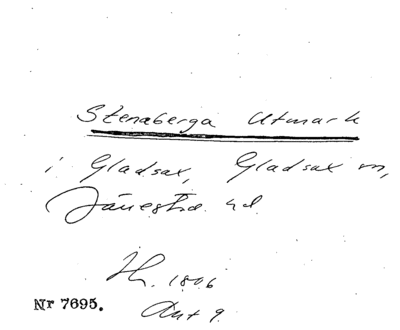 Stenaberga Utmark
i Gladsax, Gladsax sn,
Järrestad hd
H. 1806
Akt 9.
Nr 7695.